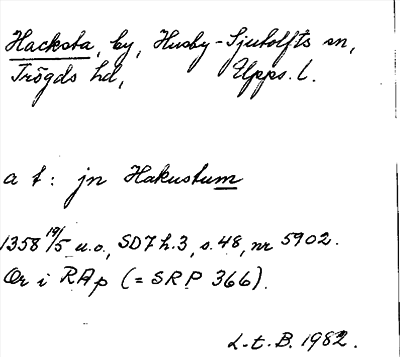 Hacksta, by, Husby-Sjutolfts sn,
Trögds hd, Upps. l.
a t: jn Hakustum
1358 19/5 u.o., SD7 h.3, s.48, nr 5902.
Or i RAp (= SRP 366).
L.t.B. 1982.